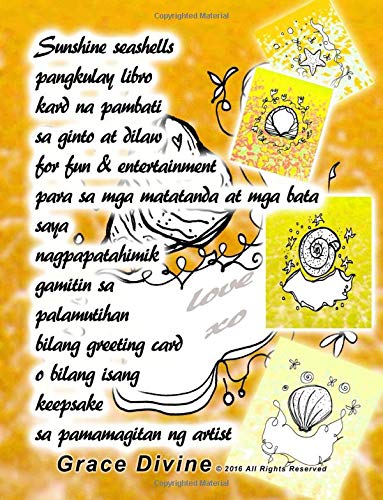 Copyrighted Material
Sunshine seashells
pangkulay libro
kard na pambati
sa ginto at dilaw
for fun & entertainment
para sa mga matatanda at mga bata
saya
nagpapatahimik
gamitin sa
palamutihan
bilang greeting card
o bilang isang
keepsake
sa pamamagitan ng artist
love
xo
Grace Divine © 2016 All Rights Reserved
Copyrighted Material